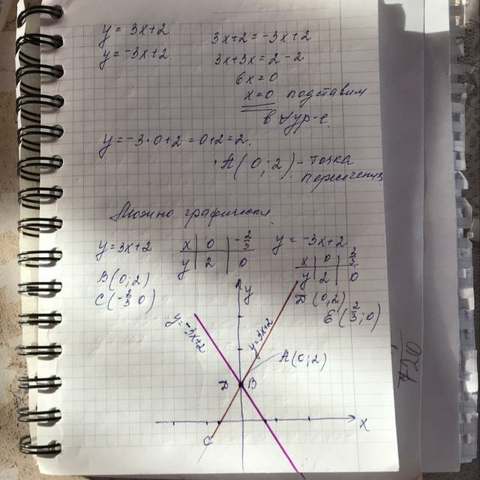 y = 3x+2
3x+2 = -3x+2
y = -3x+2
3x+3x = 2-2
6x = 0
x = 0 подставим
в ур-е
y = -3·0+2 = 0+2 = 2.
A(0;2) - точка
пересечения
Можно графически.
y = 3x+2
x | 0 | -2/3
y | 2 | 0
y = -3x+2
x | 0 | 2/3
y | 2 | 0
B(0;2)
C(-2/3;0)
D(0;2)
E(2/3;0)
y
y=-3x+2
y=3x+2
A(0;2)
D
B
C
x
720